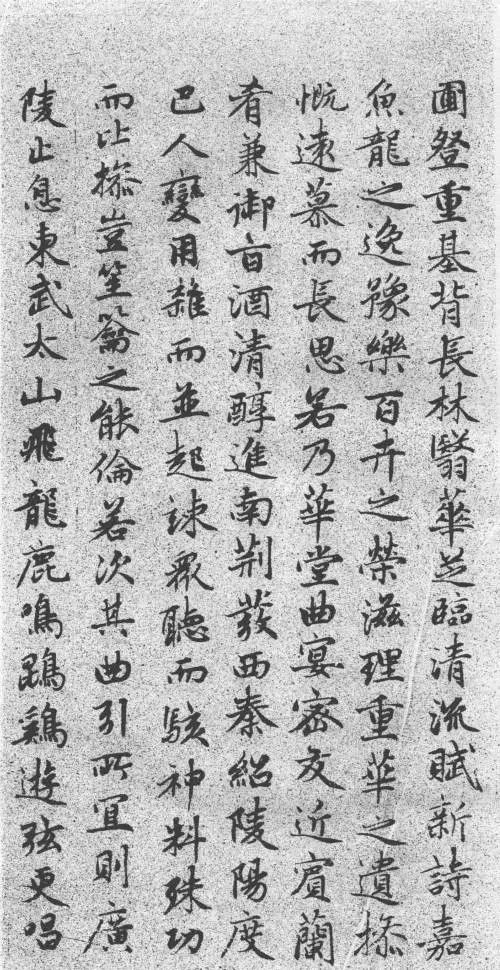 圃登重基背長林翳華芝臨清流賦新詩嘉
魚龍之逸豫樂百卉之榮滋理重華之遺操
慨遠慕而長思若乃華堂曲宴密友近賓蘭
肴兼御旨酒清醇進南荊發西秦紹陵陽度
巴人變用雜而並起竦衆聽而駭神料殊功
而比操豈笙籥之能倫若次其曲引所宜則廣
陵止息東武太山飛龍鹿鳴鵾鷄遊弦更唱